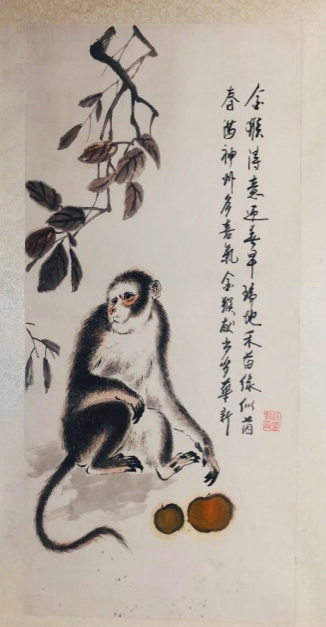 金猴得意迎春早瑞地禾苗绿似茵
春满神州多喜气金猴献出岁华新